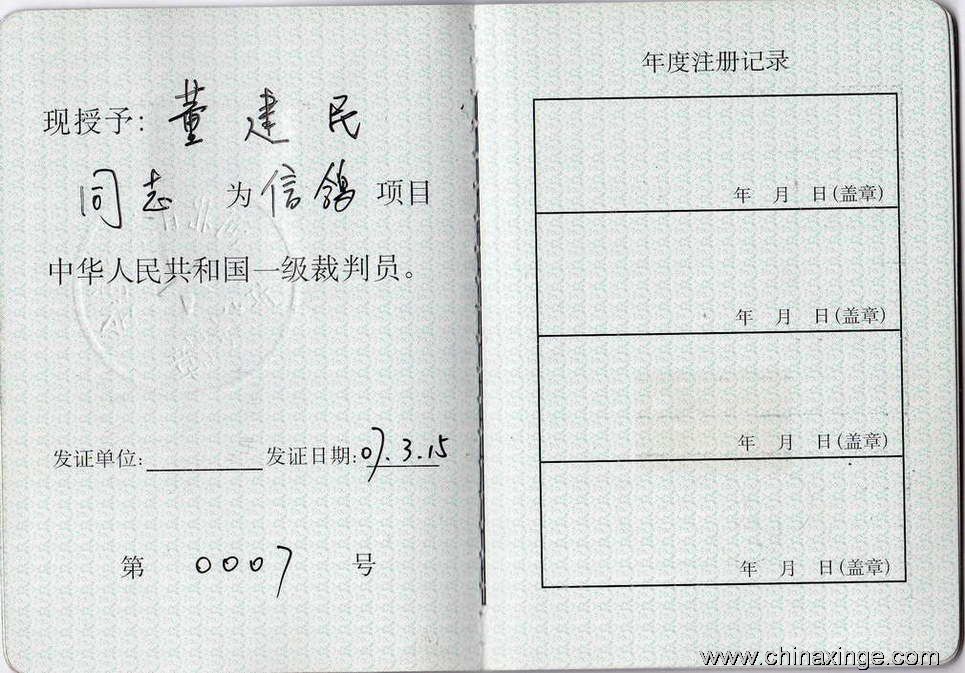 现授予：董建民
同志 为信鸽 项目
中华人民共和国一级裁判员。
发证单位： 发证日期：07.3.15
第 0007 号
年度注册记录
年 月 日(盖章)
年 月 日(盖章)
年 月 日(盖章)
年 月 日(盖章)
www.chinaxinge.com